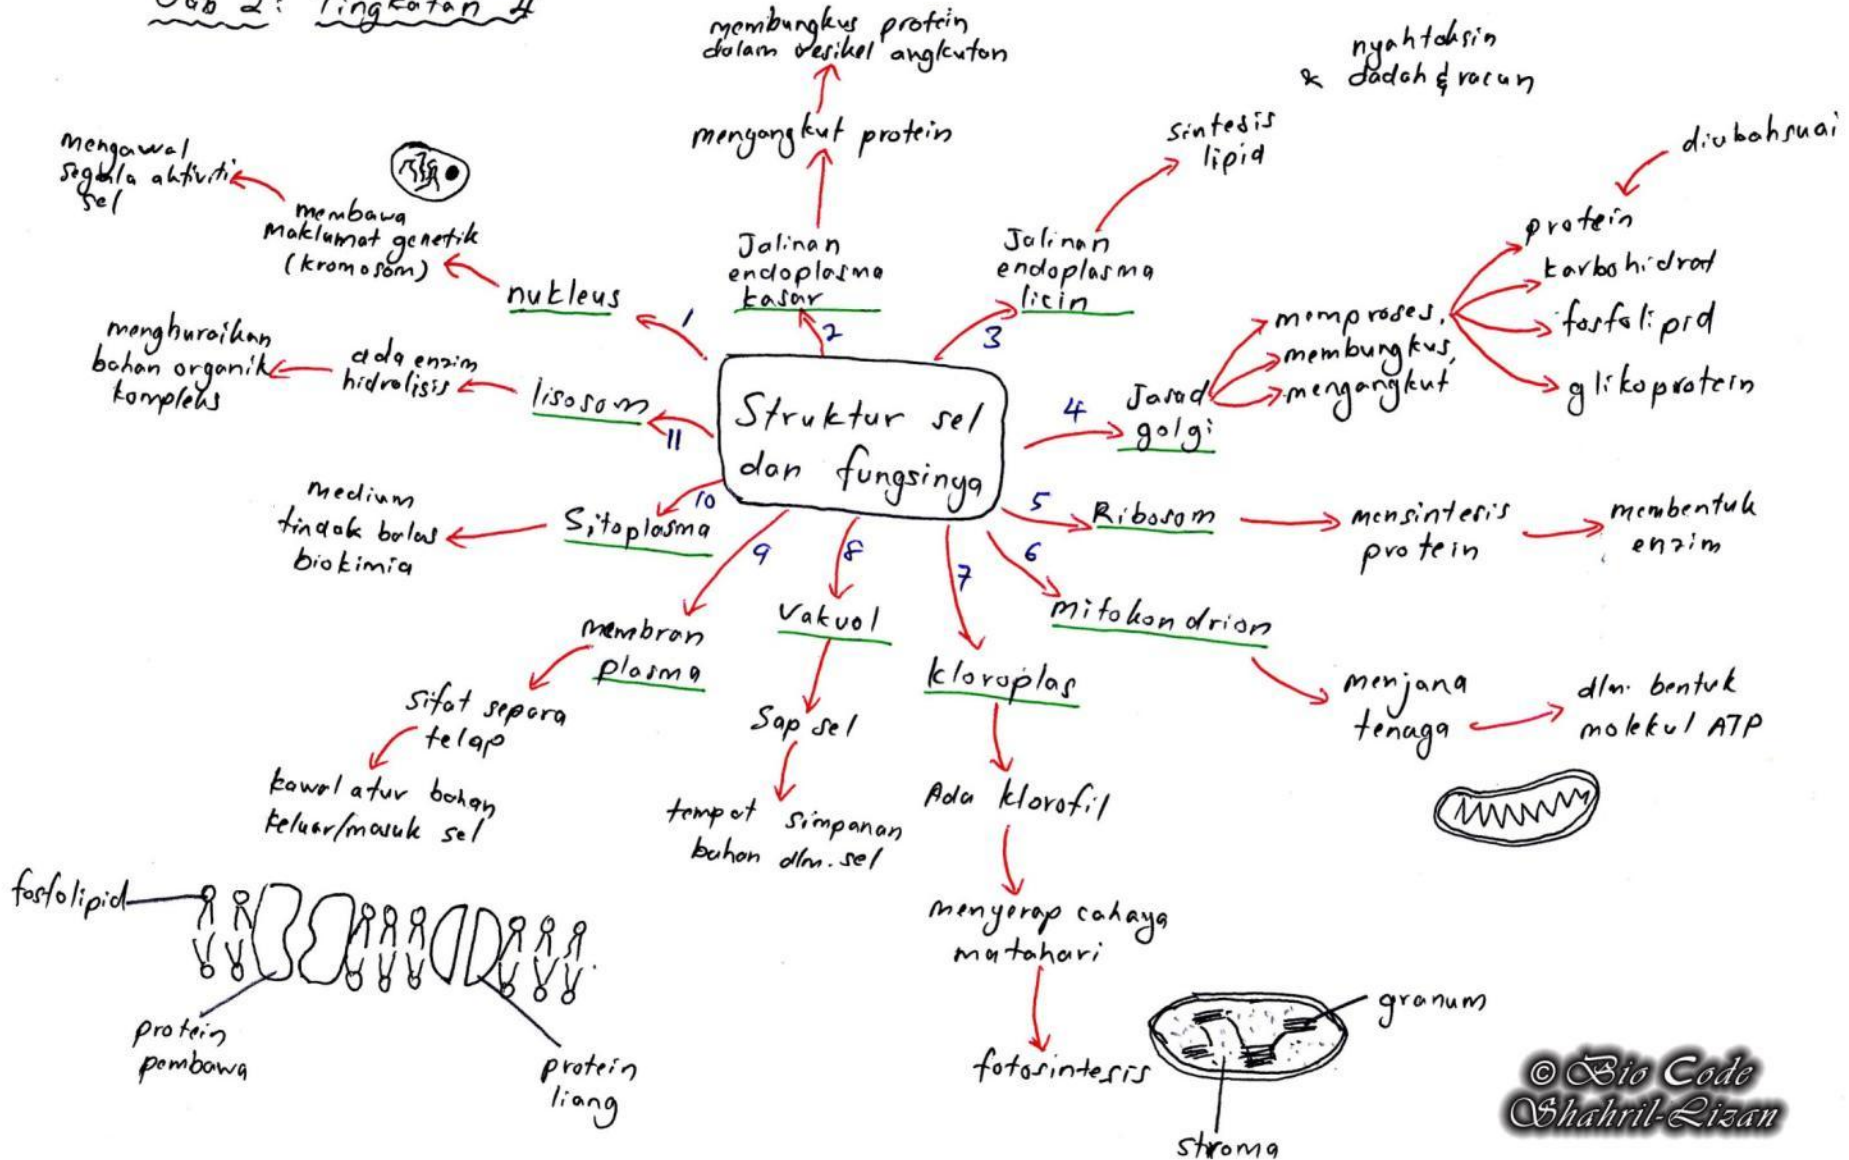 Bab 2: Tingkatan 4
Struktur sel
dan fungsinya
1
nukleus
membawa
maklumat genetik
(kromosom)
mengawal
segala aktiviti
sel
2
Jalinan
endoplasma
kasar
mengangkut protein
membungkus protein
dalam vesikel angkutan
3
Jalinan
endoplasma
licin
sintesis
lipid
nyahtoksin
& dadah & racun
4
Jasad
golgi
memproses,
membungkus,
mengangkut
diubahsuai
protein
karbohidrat
fosfolipid
glikoprotein
5
Ribosom
mensintesis
protein
membentuk
enzim
6
mitokondrion
menjana
tenaga
dlm. bentuk
molekul ATP
7
kloroplas
Ada klorofil
menyerap cahaya
matahari
fotosintesis
granum
stroma
8
Vakuol
Sap sel
tempat simpanan
bahan dlm. sel
9
membran
plasma
sifat separa
telap
kawal atur bahan
keluar/masuk sel
fosfolipid
protein
pembawa
protein
liang
10
Sitoplasma
medium
tindak balas
biokimia
11
lisosom
ada enzim
hidrolisis
menghuraikan
bahan organik
kompleks
© Bio Code
Shahril-Lizan